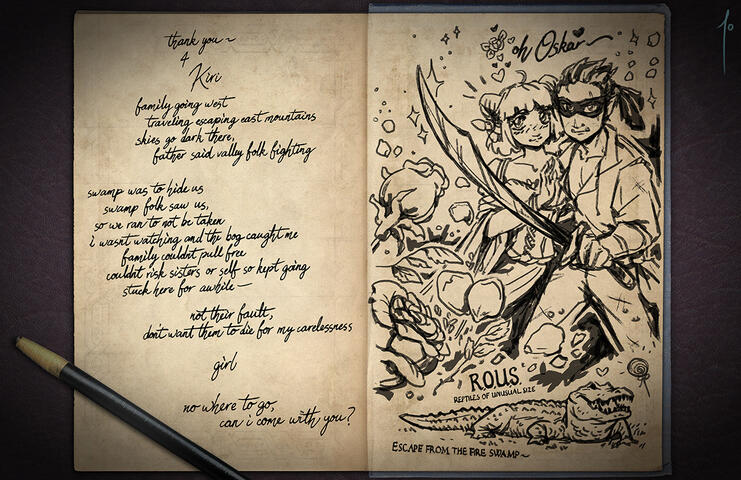 thank you~
4
Kiri
family going west
traveling escaping east mountains
skies go dark there,
father said valley folk fighting
swamp was to hide us
swamp folk saw us,
so we ran to not be taken
i wasnt watching and the bog caught me
family couldnt pull free
couldnt risk sisters or self so kept going
stuck here for awhile —
not their fault,
dont want them to die for my carelessness
girl
no where to go,
can i come with you?
oh Oskar~
R.O.U.S.
REPTILES OF UNUSUAL SIZE
ESCAPE FROM THE FIRE SWAMP~